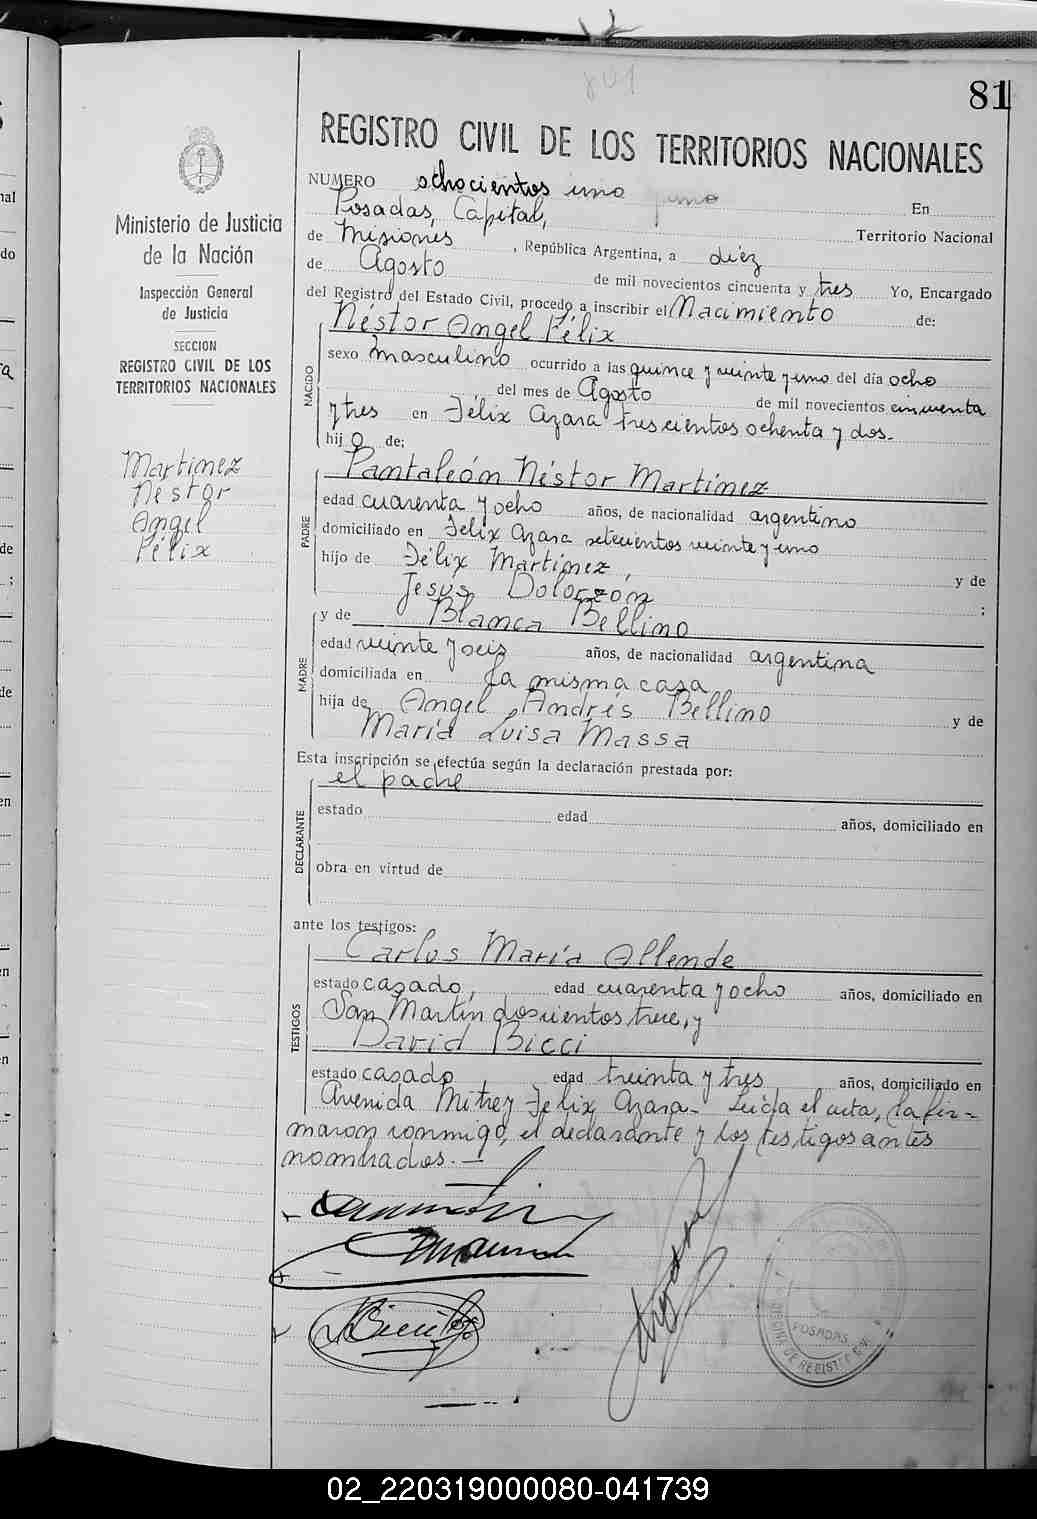 81
801
REGISTRO CIVIL DE LOS TERRITORIOS NACIONALES
NUMERO ochocientos uno En
Posadas, Capital, Territorio Nacional
de Misiones, República Argentina, a diéz
de Agosto de mil novecientos cincuenta y tres Yo, Encargado
del Registro del Estado Civil, procedo a inscribir el Nacimiento de:
NACIDO
Néstor Angel Félix
sexo masculino ocurrido a las quince y veinte y uno del día ocho
del mes de Agosto de mil novecientos cincuenta
y tres en Félix Azara trescientos ochenta y dos.-
hijo de:
PADRE
Pantaleón Néstor Martínez
edad cuarenta y ocho años, de nacionalidad argentino
domiciliado en Felix Azara setecientos veinte y uno
hijo de Félix Martínez, y de
Jesus Dolorzón ;
MADRE
y de Blanca Bellino
edad veinte y seis años, de nacionalidad argentina
domiciliada en la misma casa
hija de Angel Andrés Bellino y de
María Luisa Massa
Esta inscripción se efectúa según la declaración prestada por:
el padre
DECLARANTE
estado edad años, domiciliado en
obra en virtud de
ante los testigos:
TESTIGOS
Carlos María Allende
estado casado, edad cuarenta y ocho años, domiciliado en
San Martín doscientos trece, y
David Bicci
estado casado edad treinta y tres años, domiciliado en
Avenida Mitre y Felix Azara.- Leída el acta, la fir=
maron conmigo, el declarante y los testigos antes
nombrados.-
Ministerio de Justicia
de la Nación
Inspección General
de Justicia
SECCION
REGISTRO CIVIL DE LOS
TERRITORIOS NACIONALES
Martinez
Néstor
Angel
Félix
POSADAS
OFICINA DE REGISTRO CIVIL
02_220319000080-041739